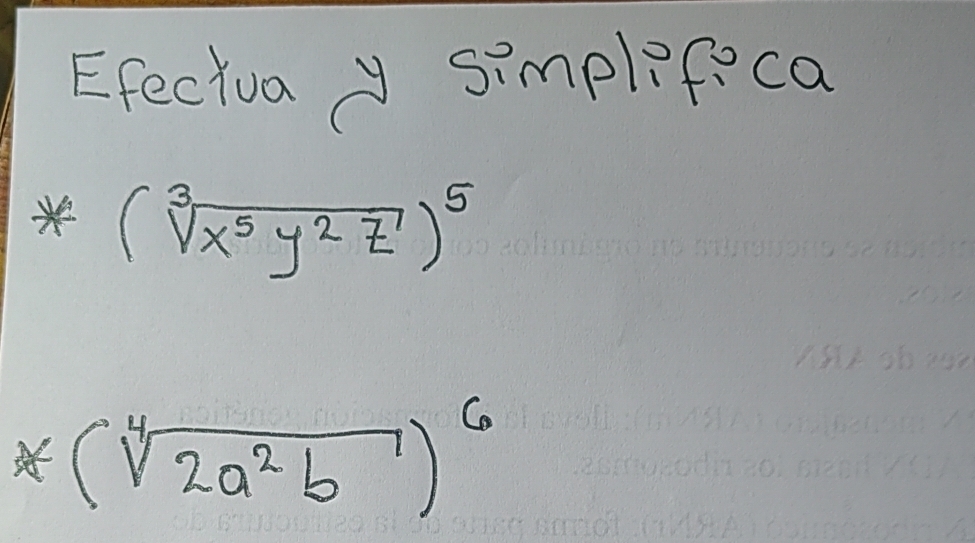 Efectua y simplifica
* (∛x⁵y²z)⁵
* (∜2a²b)⁶